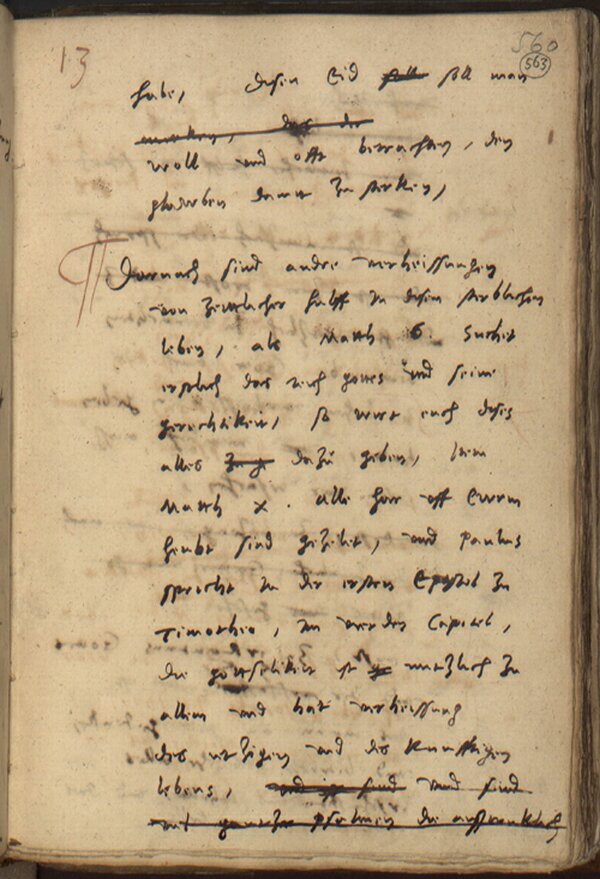 13
560
563
habe, disen Eid soll soll man
mercken, das die
woll und offt betrachten, den
glawben damit zu sterken,
Darnach sind andre verheissungen
von zeittlicher hülff in disem sterblichen
leben, als Matth 6. Suchet
erstlich das reich gottes und seine
gerechtikeit, so wirt euch dises
alles zu g dazu geben, Item
Matth X. alle har uff Ewrem
heubt sind gezelet, und Paulus
spricht in der ersten Epistel zu
Timotheo, im vierden Capitel,
die gottselikeit ist nutzlich zu
allem und hat verheissung
des itzigen und des kunfftigen
lebens, und sind und sind
die ausstrucklich